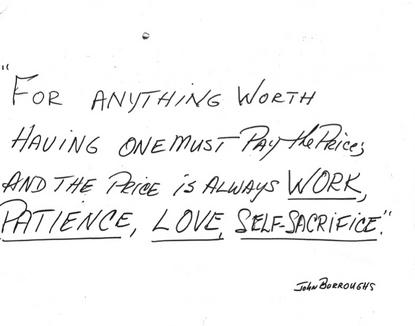 "FOR ANYTHING WORTH
HAVING ONE MUST PAY the PRICE;
AND THE PRICE IS ALWAYS WORK,
PATIENCE, LOVE, SELF-SACRIFICE."
JOHN BORROUGHS